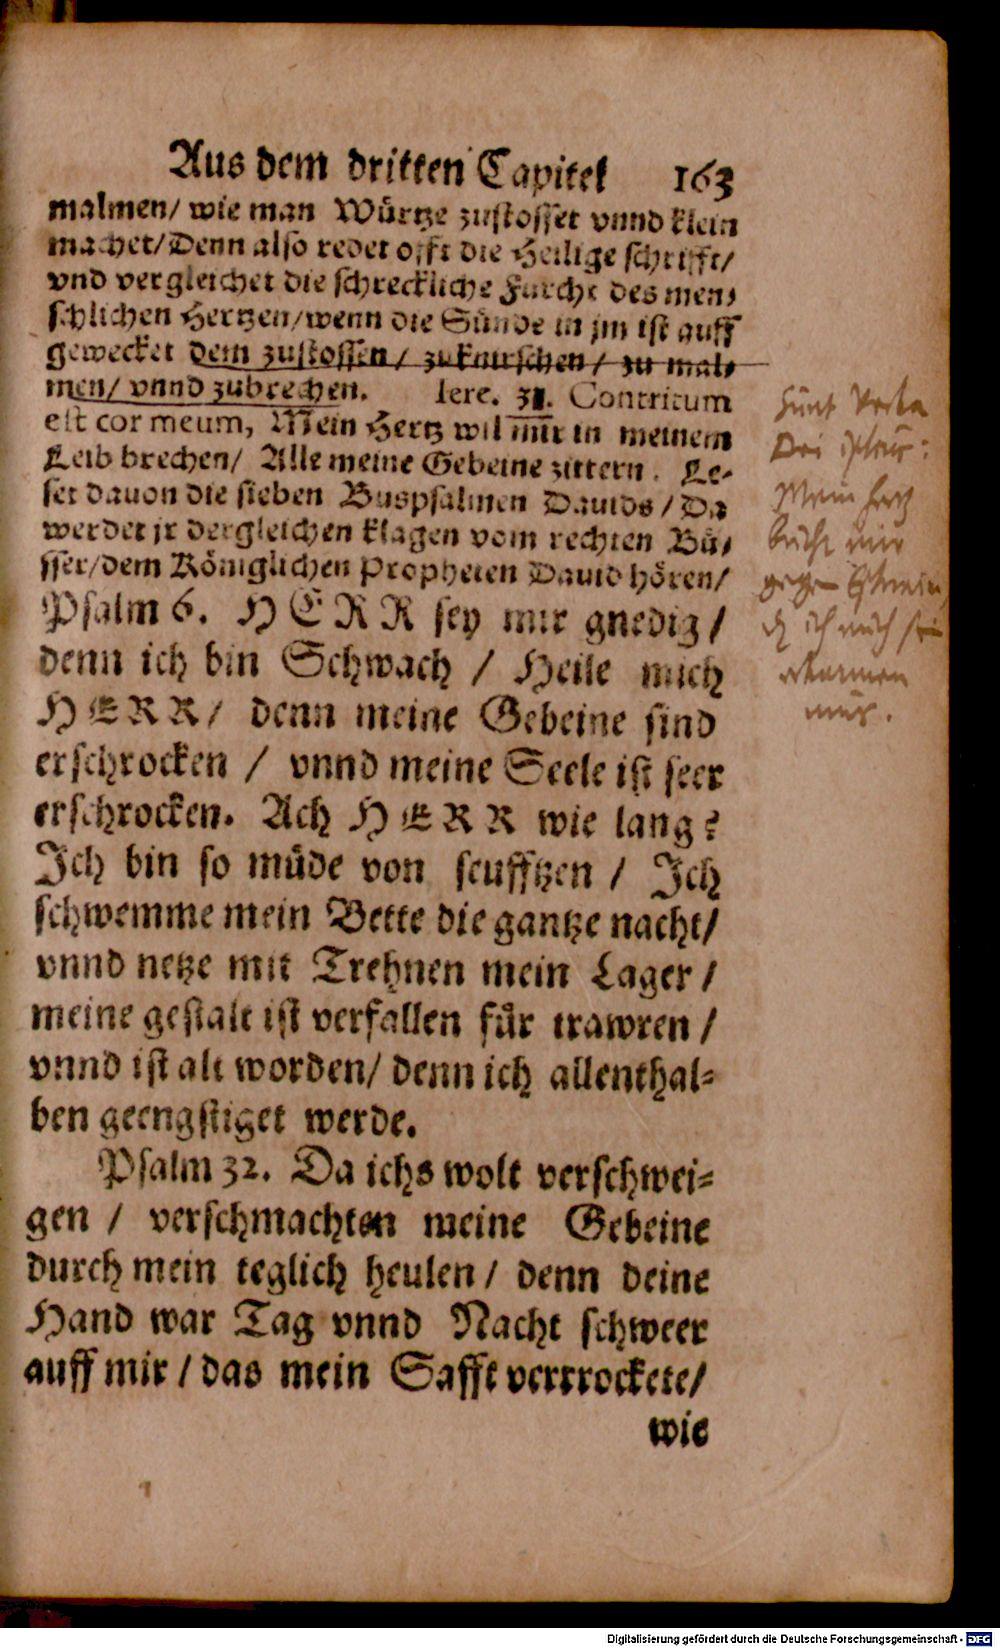 Aus dem dritten Capitel 163
malmen/ wie man Würtze zustosset vnnd klein
machet/Denn also redet offt die Heilige schrifft/
vnd vergleichet die schreckliche Furcht des men-
schlichen Hertzen/wenn die Sünde in jm ist auff
gewecket dem zustossen/ zuknirschen/ zu mal-
men/ vnnd zubrechen. Iere. 31. Contritum
est cor meum, Mein Hertz wil mir in meinem
Leib brechen/ Alle meine Gebeine zittern. Le-
set dauon die sieben Buspsalmen Dauids/ Da
werdet jr dergleichen klagen vom rechten Bü-
sser/dem Königlichen Propheten Dauid hören/
Psalm 6. HERR sey mir gnedig/
denn ich bin Schwach/ Heile mich
HERR/ denn meine Gebeine sind
erschrocken/ vnnd meine Seele ist seer
erschrocken. Ach HERR wie lang?
Ich bin so müde von seufftzen/ Ich
schwemme mein Bette die gantze nacht/
vnnd netze mit Trehnen mein Lager/
meine gestalt ist verfallen für trawren/
vnnd ist alt worden/ denn ich allenthal-
ben geengstiget werde.
Psalm 32. Da ichs wolt verschwei-
gen/ verschmachten meine Gebeine
durch mein teglich heulen/ denn deine
Hand war Tag vnnd Nacht schweer
auff mir/ das mein Safft vertrockete/
wie
Sunt Verba
Dei
Mein hertz
bricht mir
gegen
ich mich sein
erbarmen
mus.
Digitalisierung gefördert durch die Deutsche Forschungsgemeinschaft - DFG